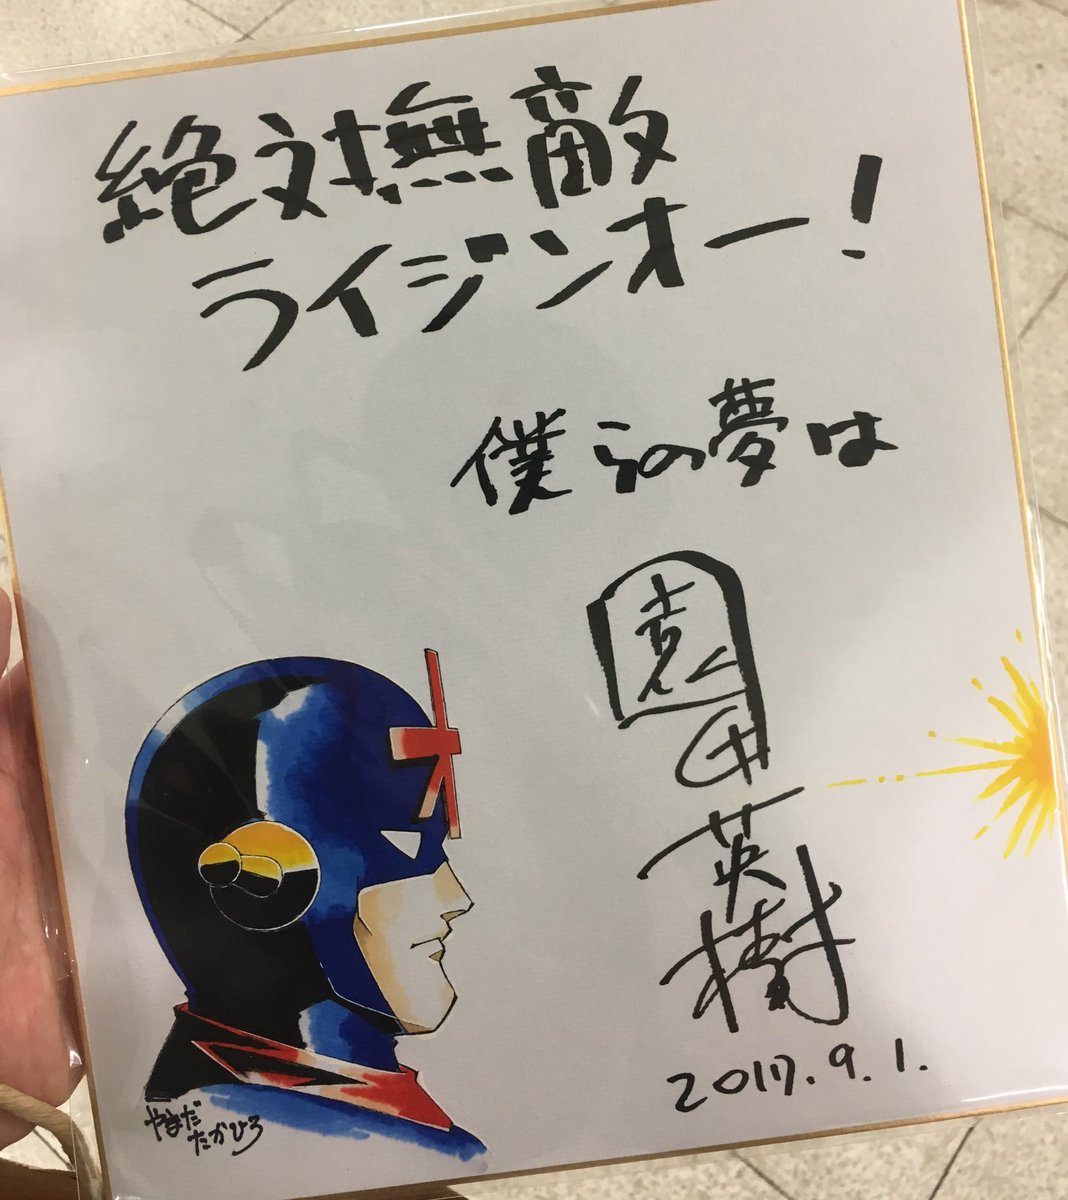 絶対無敵
ライジンオー!
僕らの夢は
園田
英樹
2017.9.1.
やまだ
たかひろ